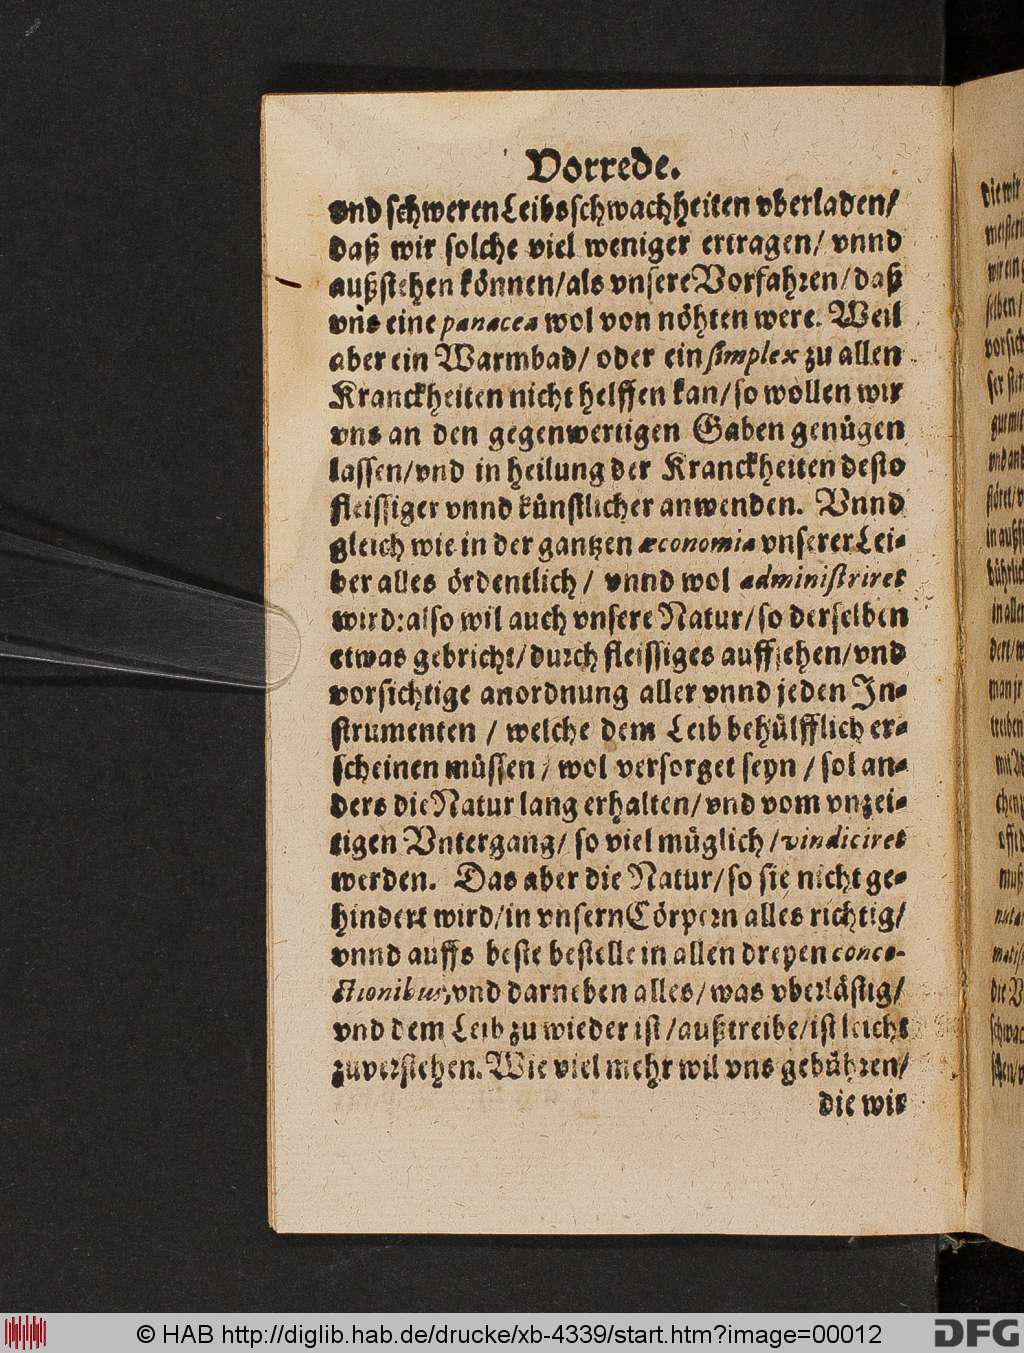 Vorrede.
vnd schweren Leibsschwachheiten vberladen/
daß wir solche viel weniger ertragen/ vnnd
außstehen können/als vnsere Vorfahren/daß
vns eine panacea wol von nöhten were. Weil
aber ein Warmbad/ oder ein simplex zu allen
Kranckheiten nicht helffen kan/so wollen wir
vns an den gegenwertigen Gaben genügen
lassen/vnd in heilung der Kranckheiten desto
fleissiger vnnd künstlicher anwenden. Vnnd
gleich wie in der gantzen œconomia vnserer Lei-
ber alles ördentlich/ vnnd wol administriret
wird:also wil auch vnsere Natur/so derselben
etwas gebricht/durch fleissiges auffsehen/vnd
vorsichtige anordnung aller vnnd jeden In-
strumenten / welche dem Leib behülfflich er-
scheinen müssen / wol versorget seyn / sol an-
ders die Natur lang erhalten/vnd vom vnzei-
tigen Vntergang/ so viel müglich /vindiciret
werden. Das aber die Natur/so sie nicht ge-
hindert wird/in vnsern Cörpern alles richtig/
vnnd auffs beste bestelle in allen dreyen conco-
ctionibus,vnd darneben alles/was vberlästig/
vnd dem Leib zu wieder ist/außtreibe/ist leicht
zuverstehen. Wie viel mehr wil vns gebühren/
die wir
die wir
© HAB http://diglib.hab.de/drucke/xb-4339/start.htm?image=00012
DFG